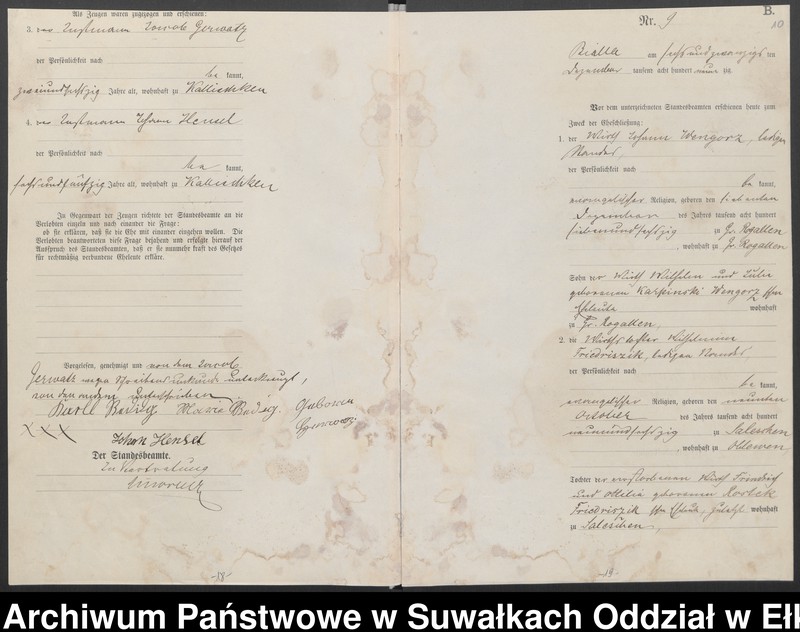 Als Zeugen waren zugezogen und erschienen:
3. der Instmann Jacob Gerwatz
der Persönlichkeit nach
be kannt,
zweiundsechzig Jahre alt, wohnhaft zu Kallischken
4. der Instmann Johann Hensel
der Persönlichkeit nach
be kannt,
sechsundfünfzig Jahre alt, wohnhaft zu Kallischken
In Gegenwart der Zeugen richtete der Standesbeamte an die
Verlobten einzeln und nach einander die Frage:
ob sie erklären, daß sie die Ehe mit einander eingehen wollen. Die
Verlobten beantworteten diese Frage bejahend und erfolgte hierauf der
Ausspruch des Standesbeamten, daß er sie nunmehr kraft des Gesetzes
für rechtmäßig verbundene Eheleute erkläre.
Vorgelesen, genehmigt und von dem Jacob
Gerwatz wegen Schreibensunkunde unterkreuzt,
von den anderen unterschrieben
Karl
XXX
Johan Hensel
Der Standesbeamte.
In Vertretung
-18-
B.
10
Nr. 9
Bialla am sechsundzwanzigs ten
Dezember tausend acht hundert neun zig
Vor dem unterzeichneten Standesbeamten erschienen heute zum
Zweck der Eheschließung:
1. der Wirth Johann Wengorz, ledigen
Standes,
der Persönlichkeit nach
be kannt,
evangelischer Religion, geboren den siebenten
Dezember des Jahres tausend acht hundert
siebenundsechzig zu Gr. Rogallen
, wohnhaft zu Gr. Rogallen
Sohn der Wirth Wilhelm und Julie
geborenen Karpinski Wengorz schen
Eheleute wohnhaft
zu Gr. Rogallen,
2. die Wirthstochter Wilhelmine
Friedriszik, ledigen Standes
der Persönlichkeit nach
be kannt,
evangelischer Religion, geboren den neunten
October des Jahres tausend acht hundert
neunundsechzig zu Saleschen
, wohnhaft zu Oblewen
Tochter der verstorbenen Wirth Friedrich
und Ottilie geborenen Rostek
Friedriszik schen Eheleute, zuletzt wohnhaft
zu Saleschen,
-19-
Archiwum Państwowe w Suwałkach Oddział w Ełk